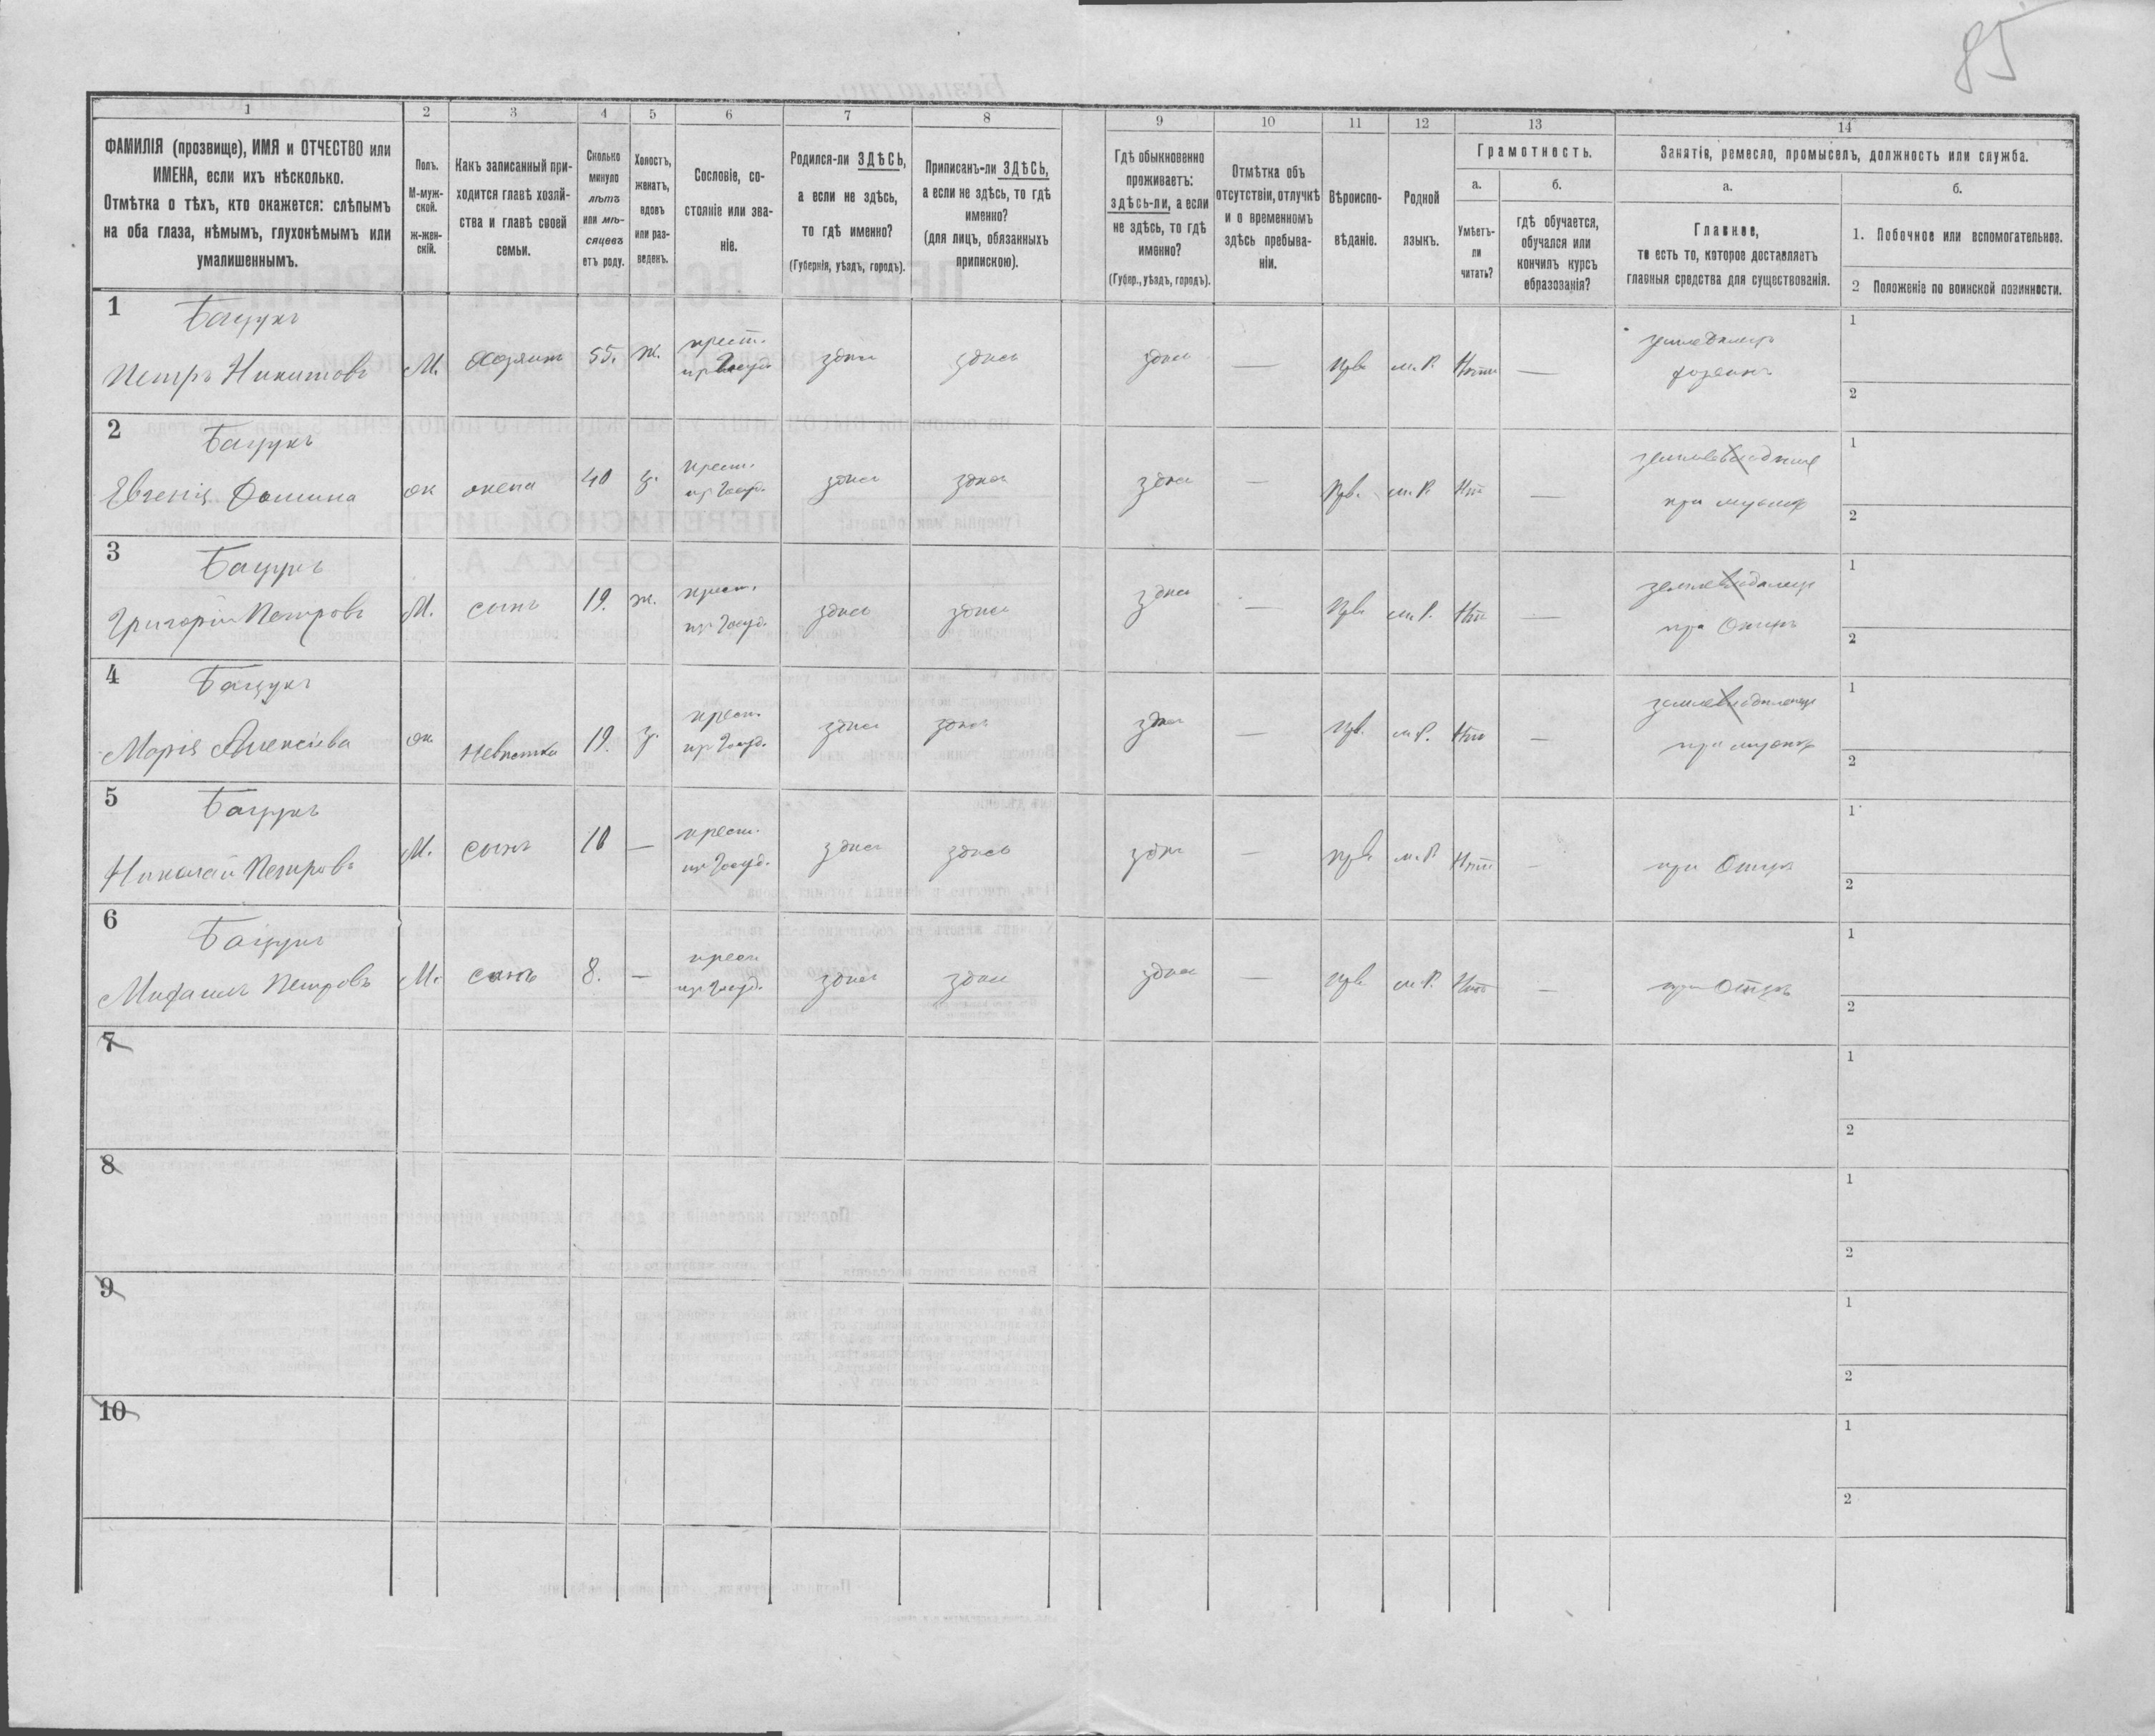 85
1
2
3
4
5
6
7
8
9
10
11
12
13
14
ФАМИЛІЯ (прозвище), ИМЯ и ОТЧЕСТВО или
ИМЕНА, если ихъ нѣсколько.
Отмѣтка о тѣхъ, кто окажется: слѣпымъ
на оба глаза, нѣмымъ, глухонѣмымъ или
умалишеннымъ.
Полъ.
М-муж-
ской.
ж-жен-
скій.
Какъ записанный при-
ходится главѣ хозяй-
ства и главѣ своей
семьи.
Сколько
минуло
лѣтъ
или мѣ-
сяцевъ
отъ роду.
Холостъ,
женатъ,
вдовъ
или раз-
веденъ.
Сословіе, со-
стояніе или зва-
ніе.
Родился-ли ЗДѢСЬ,
а если не здѣсь,
то гдѣ именно?
(Губернія, уѣздъ, городъ).
Приписанъ-ли ЗДѢСЬ,
а если не здѣсь, то гдѣ
именно?
(для лицъ, обязанныхъ
припискою).
Гдѣ обыкновенно
проживаетъ:
здѣсь-ли, а если
не здѣсь, то гдѣ
именно?
(Губер., уѣздъ, городъ).
Отмѣтка объ
отсутствіи, отлучкѣ
и о временномъ
здѣсь пребыва-
ніи.
Вѣроиспо-
вѣданіе.
Родной
языкъ.
Грамотность.
а.
Умѣетъ-
ли
читать?
б.
гдѣ обучается,
обучался или
кончилъ курсъ
образованія?
Занятіе, ремесло, промыселъ, должность или служба.
а.
Главное,
то есть то, которое доставляетъ
главныя средства для существованія.
б.
1. Побочное или вспомогательное.
2 Положеніе по воинской повинности.
1
Бацукъ
Петръ Никитовъ
М.
хозяинъ
55.
ж.
крест.
из госуд.
здѣсь
здѣсь
здѣсь
—
прв
м. Р.
Нѣтъ
—
земледѣлецъ
хозяинъ
1
2
2
Бацукъ
Евгенія Фомина
ж
жена
40
з.
крест.
из госуд.
здѣсь
здѣсь
здѣсь
—
прв.
м. Р.
Нѣт
—
при мужѣ
1
2
3
Бацукъ
Григорій Петровъ
М.
сынъ
19.
ж.
крест.
из госуд.
здѣсь
здѣсь
здѣсь
—
прв
м. Р.
Нѣт
—
при Отцѣ
1
2
4
Бацукъ
Марія Алексіева
ж
Невѣстка
19.
з.
крест.
из госуд.
здѣсь
здѣсь
здѣсь
—
прв.
м. Р.
Нѣт
—
при мужѣ
1
2
5
Бацукъ
Николай Петровъ
М.
сынъ
10
—
крест.
из госуд.
здѣсь
здѣсь
здѣсь
—
прв
м. Р
Нѣт
—
при Отцѣ
1
2
6
Бацукъ
Михаилъ Петровъ
М.
сынъ
8.
—
крест
из госуд.
здѣсь
здѣсь
здѣсь
—
прв
м. Р.
Нѣт
—
при Отцѣ
1
2
7
1
2
8
1
2
9
1
2
10
1
2